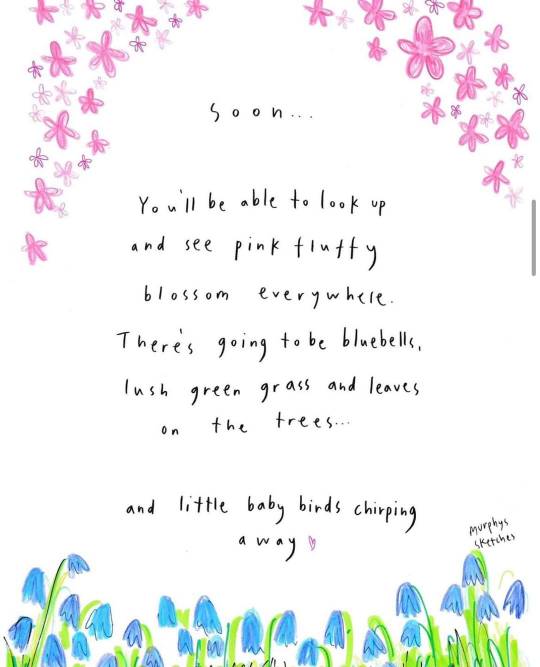 Soon...
You'll be able to look up
and see pink fluffy
blossom everywhere.
There's going to be bluebells,
lush green grass and leaves
on the trees...
and little baby birds chirping
away
murphys
sketches